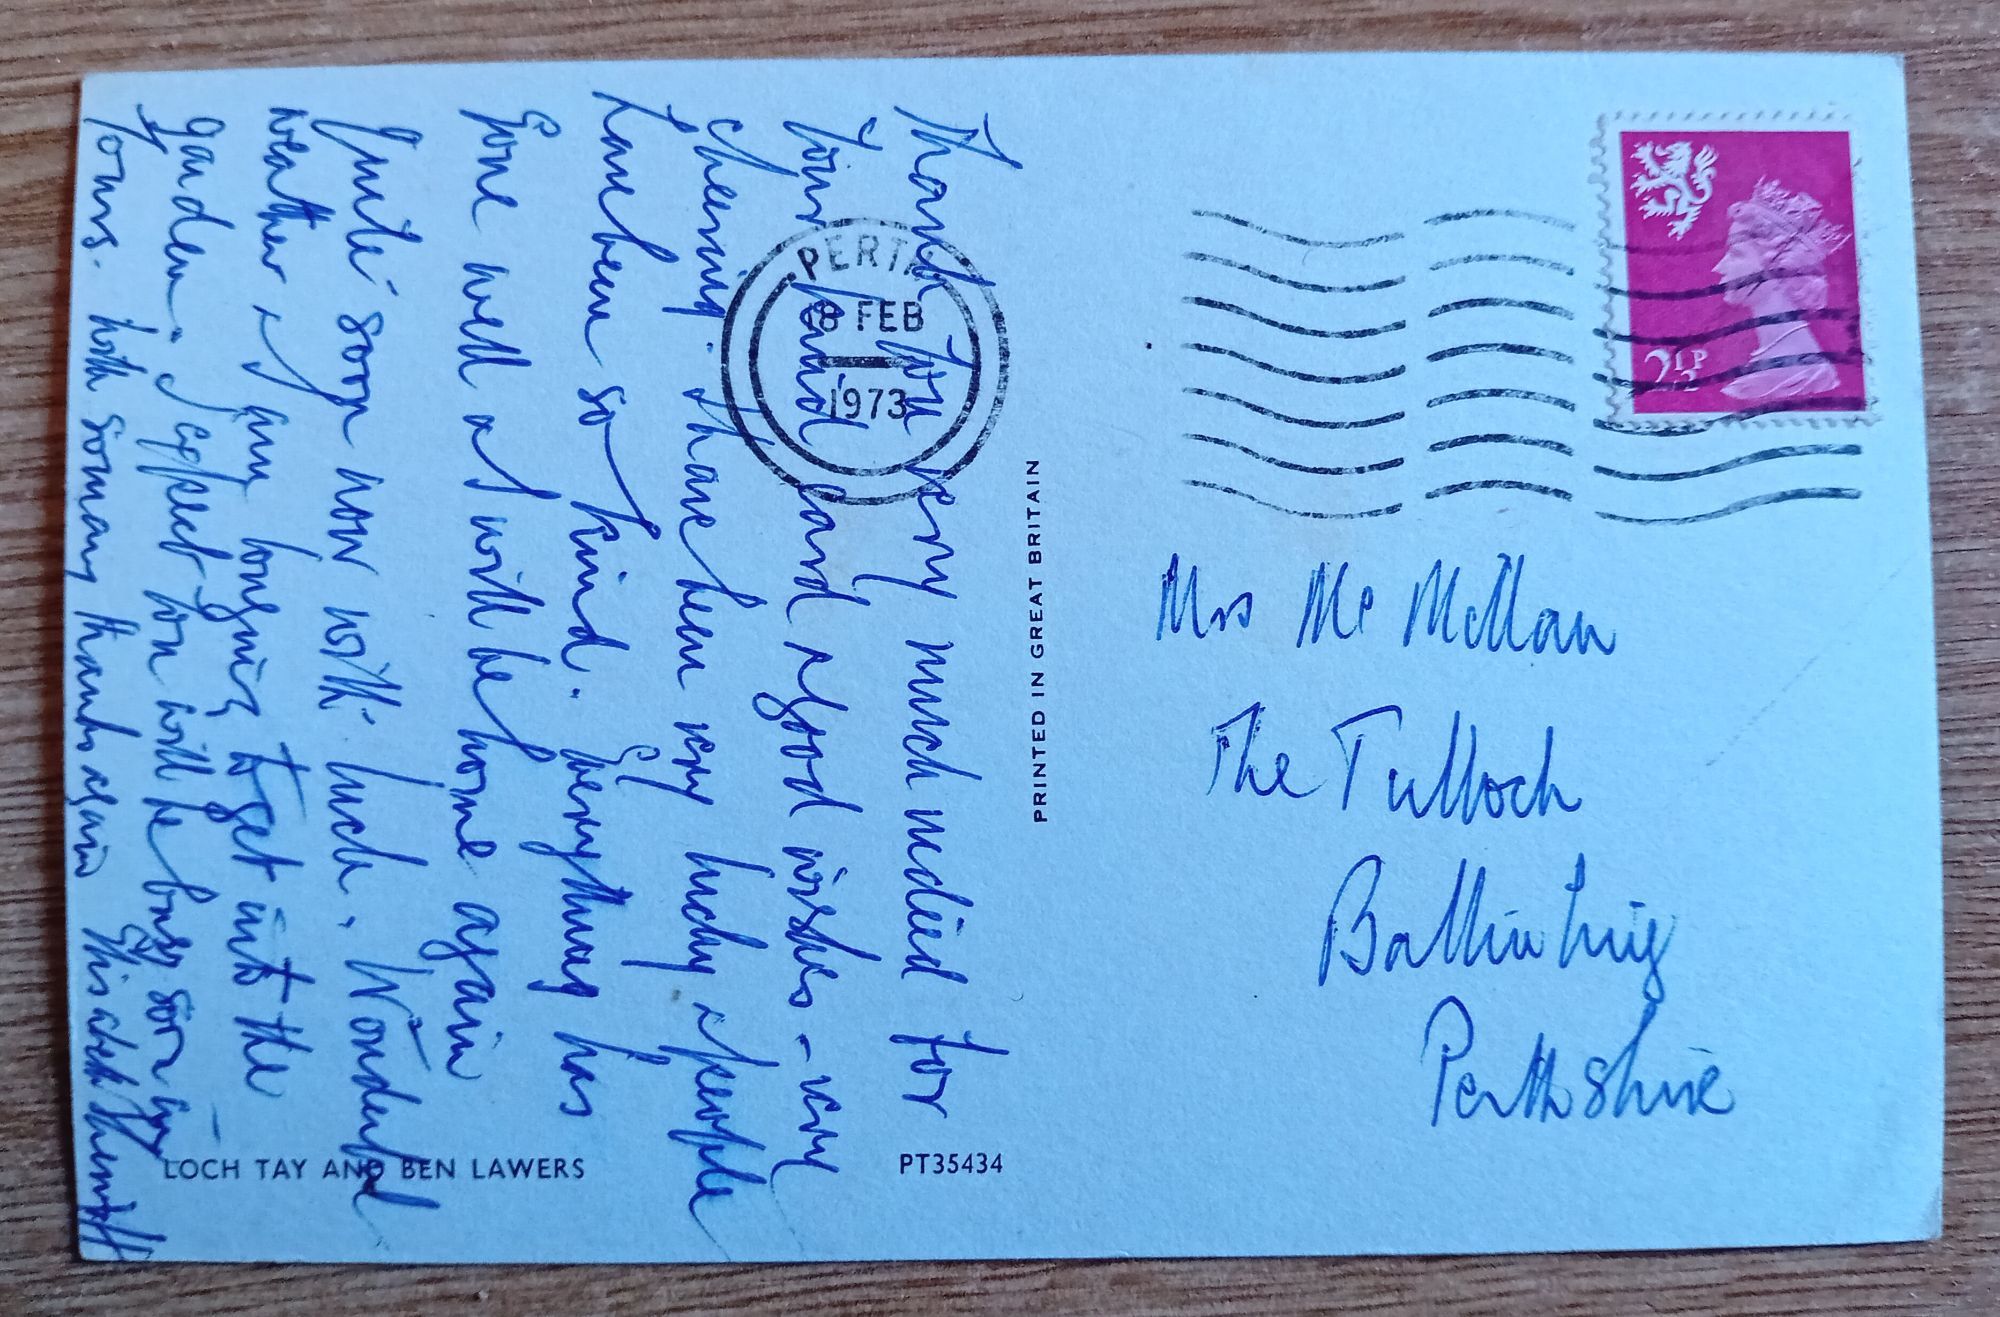 Thank you very much indeed for
your kind card & good wishes - very
cheering. I have been very lucky & people
have been so kind. Everything has
gone well & I will be home again
quite soon now with luck. Wonderful
weather & I am longing to get into the
garden. I expect you will be busy so in
yours. With so many thanks again
LOCH TAY AND BEN LAWERS
PT35434
PRINTED IN GREAT BRITAIN
PERTH
8 FEB
1973
2½P
Mrs Mc Millan
The Tulloch
Ballinluig
Perthshire